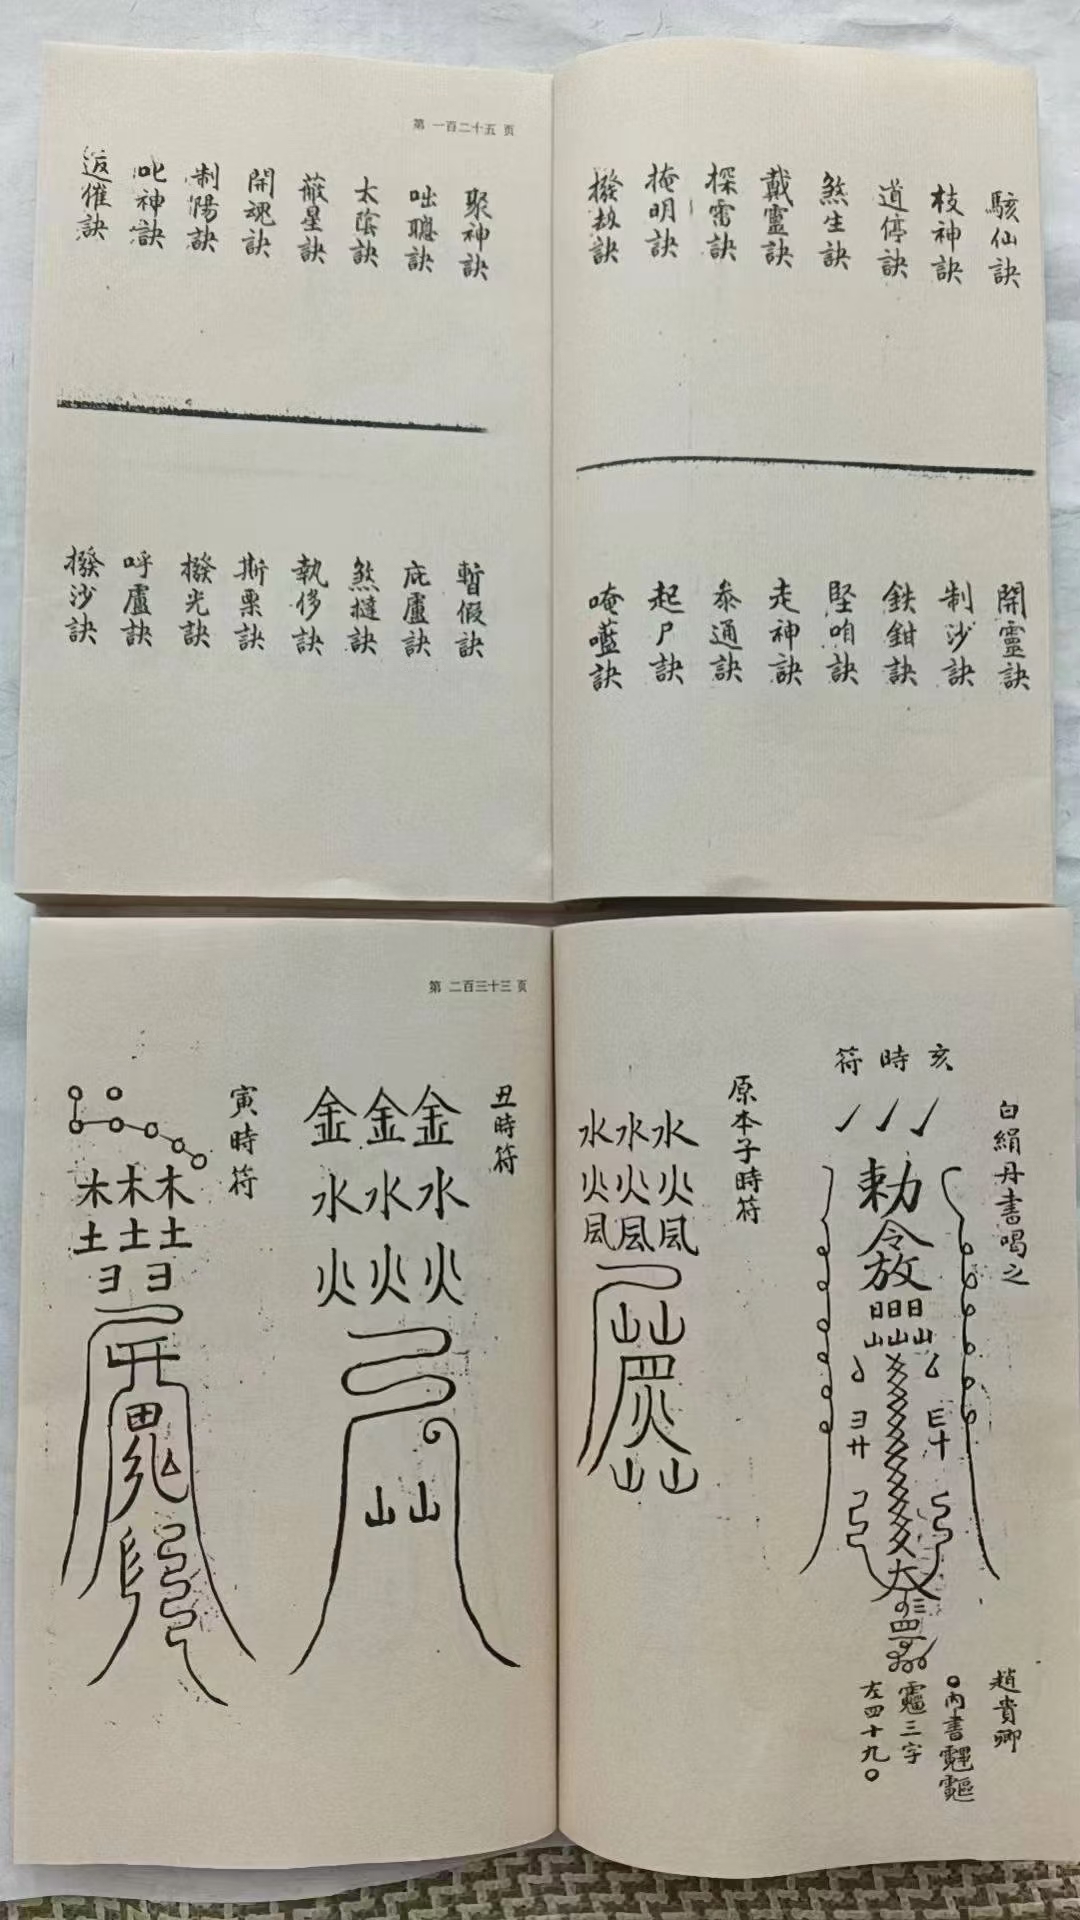 駭仙訣
枝神訣
道停訣
煞生訣
戴靈訣
探雷訣
掩明訣
撥劫訣
開靈訣
制沙訣
鉄鉗訣
堅咱訣
走神訣
泰通訣
起尸訣
唵囈訣
第 一百二十五 页
聚神訣
咄聰訣
太陰訣
蔽星訣
開魂訣
制陽訣
叱神訣
返催訣
暫假訣
庇廬訣
煞撻訣
執侈訣
斯栗訣
撥光訣
呼廬訣
撥沙訣
白絹丹書喝之
趙貴卿
亥時符
敕
令
放
日日日
山山山
内書
三字
左四十九
原本子時符
水水水
火火火
山山
山山
第 二百三十三 页
丑時符
金金金
水水水
火火火
山山
寅時符
木木木
土土土